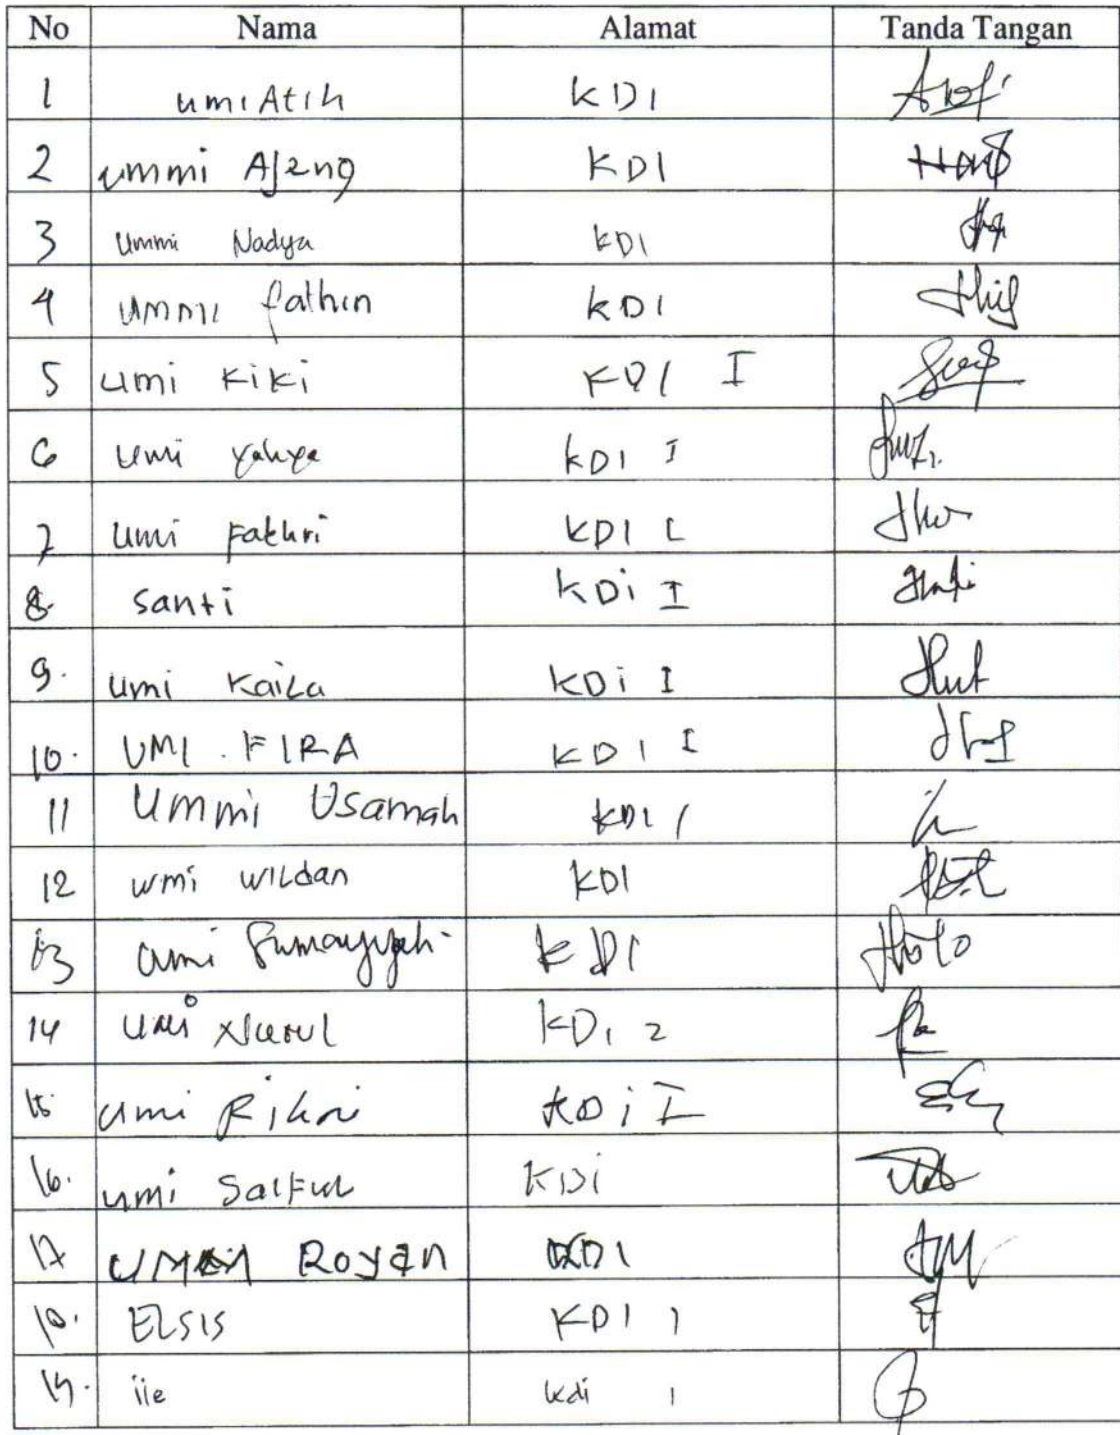 No Nama Alamat Tanda Tangan
1 umi Atih KDI
2 ummi Ajeng KDI
3 ummi Nadya KDI
4 ummi fathin KDI
5 umi Kiki KDI I
6 umi yahya KDI I
7 umi Fathri KDI I
8. santi KDi I
9. umi Kaila KDi I
10. UMI . FIRA KDI I
11 Ummi Usamah KDI I
12 umi wildan KDI
13 umi Sumayyah KDI
14 umi Nurul KDI 2
15 umi KDi I
16. umi Saiful KDi
17 Royan KDI
18. ELSIS KDI 1
19. iie kdi 1